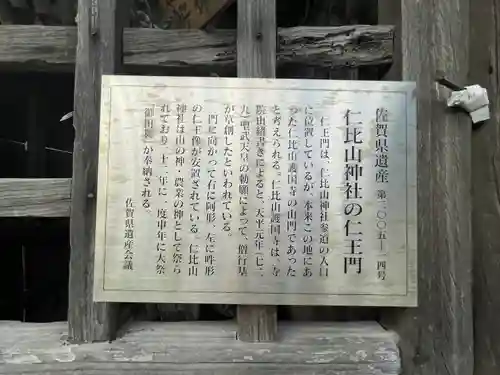 佐賀県遺産 第二〇〇五-一四号
仁比山神社の仁王門
仁王門は、仁比山神社参道の入口
に位置しているが、本来この地にあ
った仁比山護国寺の山門であった
と考えられる。仁比山護国寺は、寺
院由緒書きによると、天平元年(七二
九)聖武天皇の勅願によって、僧行基
が草創したといわれている。
門に向かって右に阿形、左に吽形
の仁王像が安置されている。仁比山
神社は山の神・農業の神として祭ら
れており、十二年に一度申年に大祭
「御田舞」が奉納される。
佐賀県遺産会議